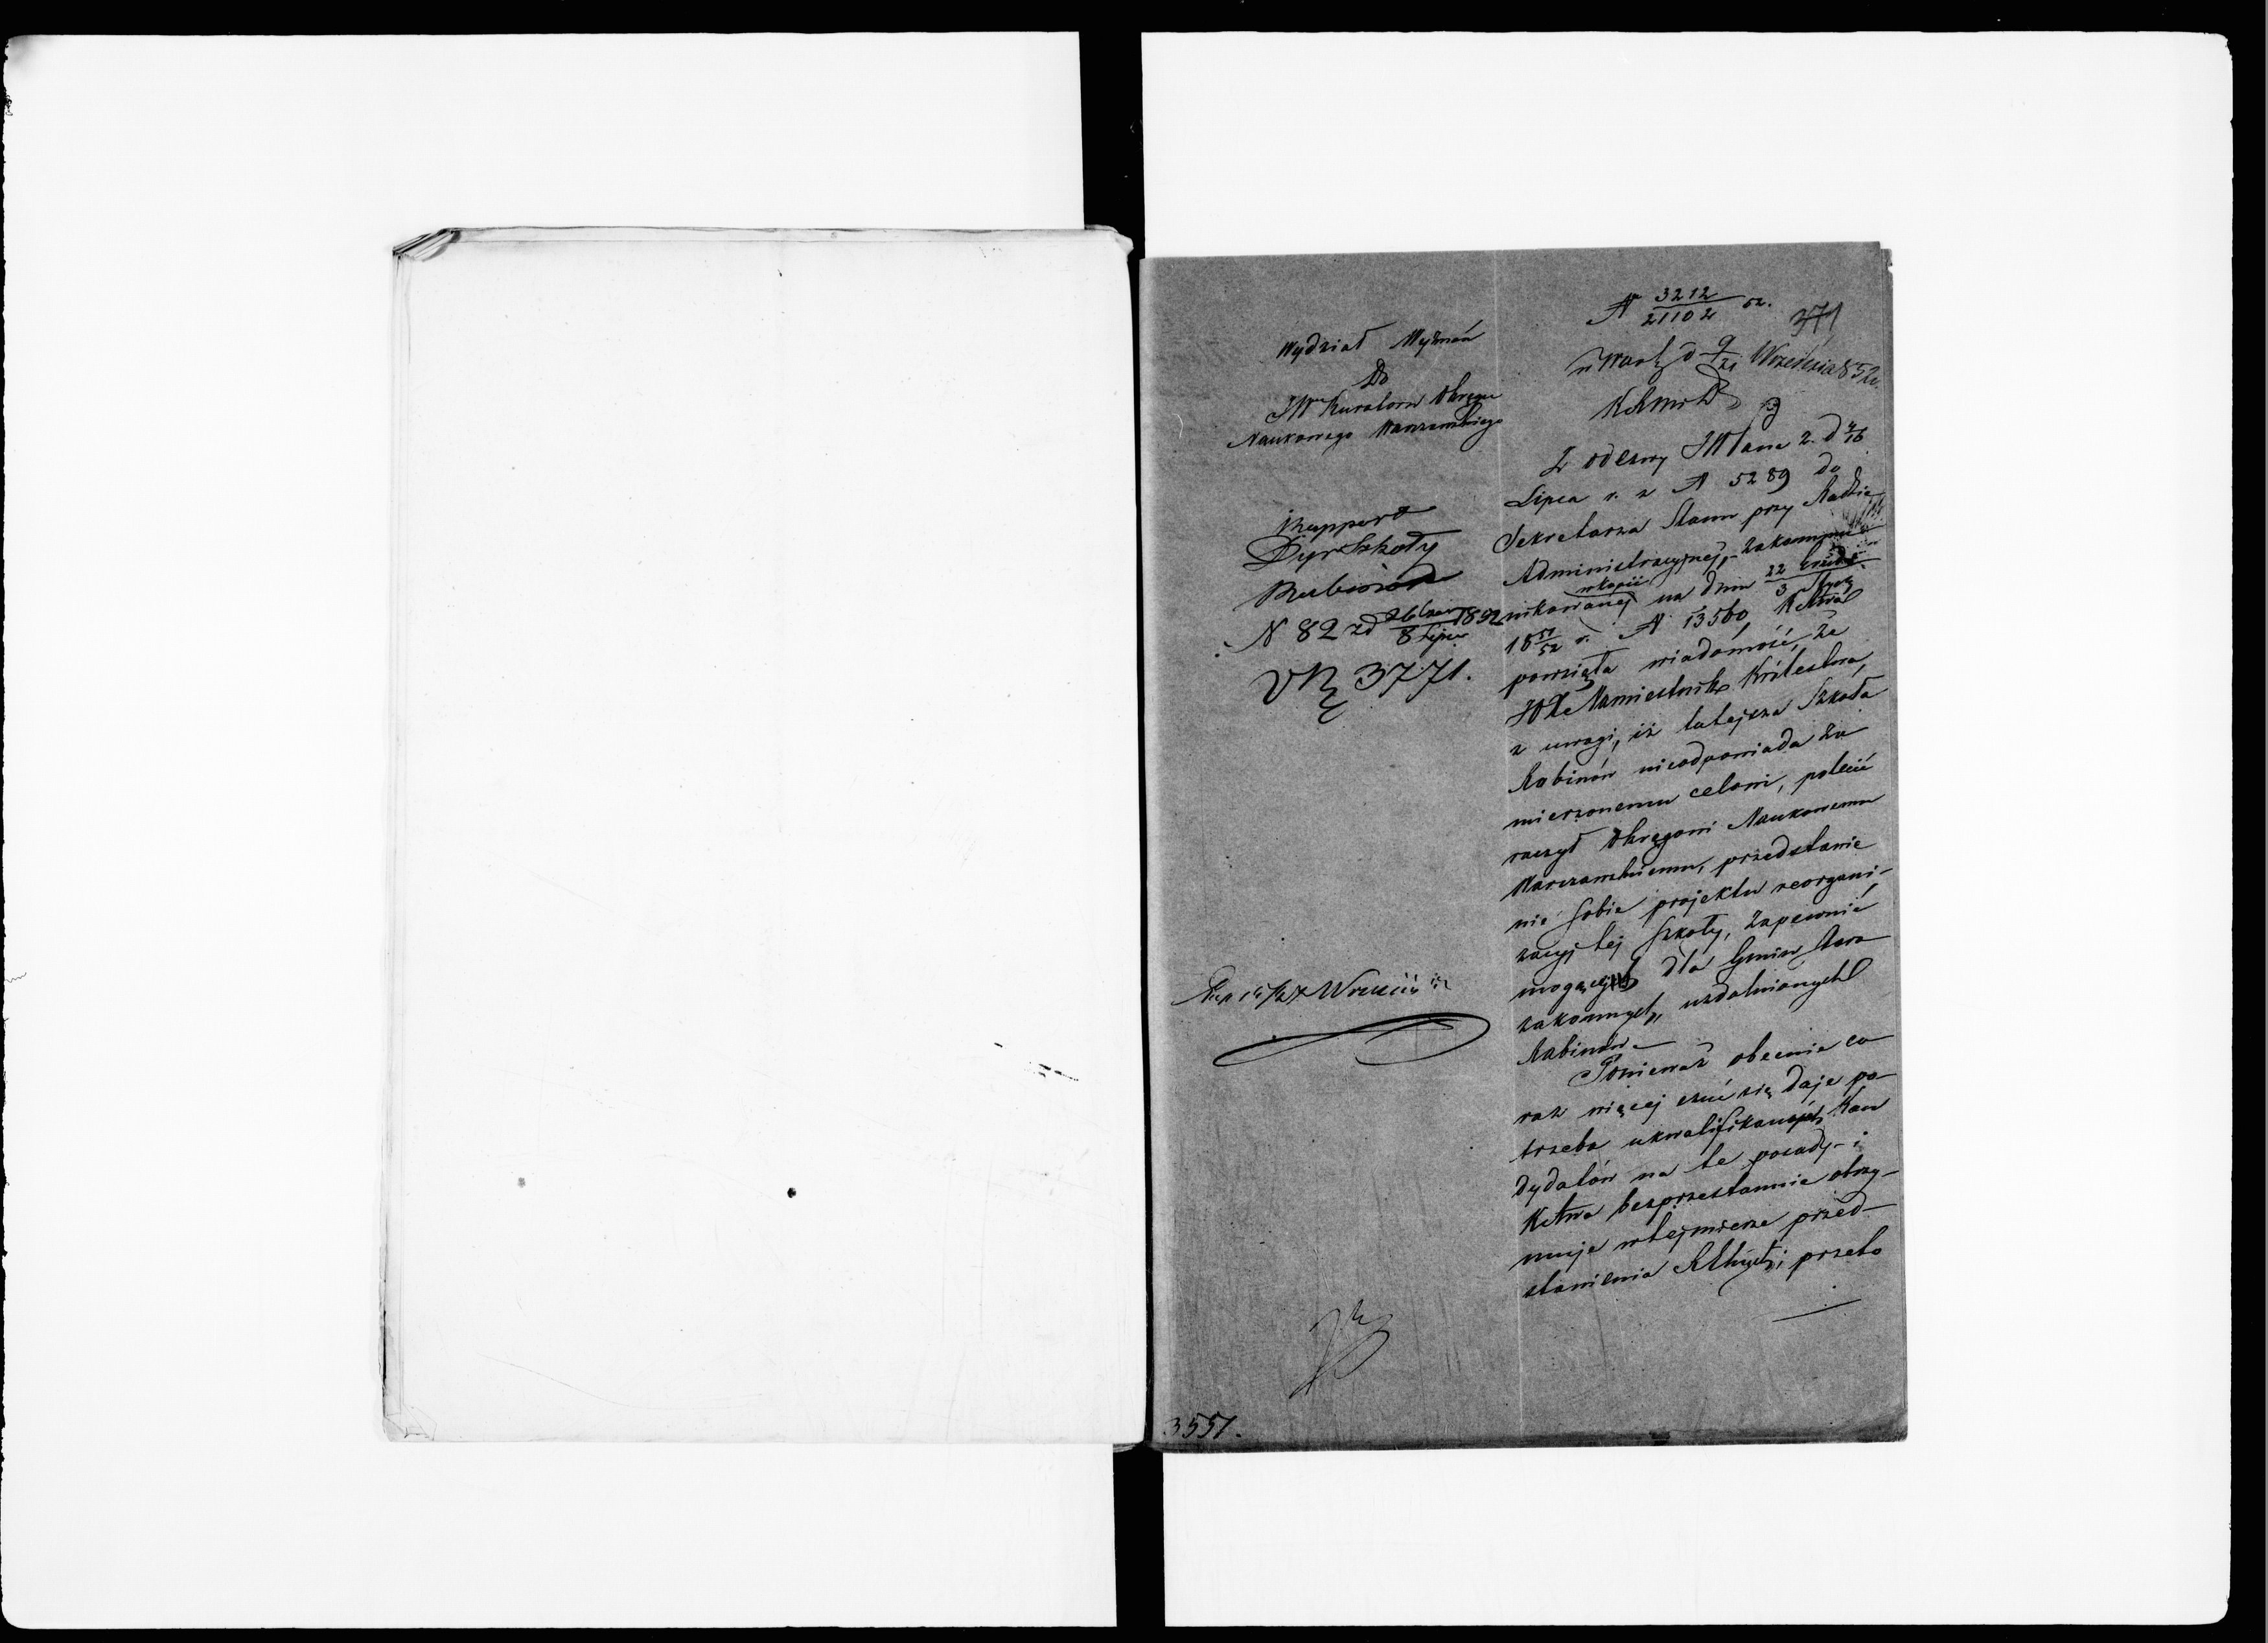 Wydział Wyznań
Do
JW Kuratora Okręgu
Naukowego Warszawskiego
Rapport
Dyr Szkoły
Rabinów
N 82 zd 26 Czer/8 Lipca 1852
3771.
Września
3551.
N 3212/21102 52.
371
w Warsz d 9/21 Września 852 r.
Z odezwy JWPana z d 4/16
Lipca r. z N 5289 do
Sekretarza Stanu przy Radzie
Administracyjnej, zakommu
w kopii
nikowanej na dniu 22 Grud/3 Stycz
18 51/52 r. N 13560
powzięła wiadomość, że
Namiestnik Królestwa,
z uwagi, iż tutejsza Szkoła
Rabinów nieodpowiada za
mierzonemu celowi, polecić
raczył Okręgowi Naukowemu
Warszawskiemu, przedstawie
nie sobie projektu reorgani-
zacyi tej Szkoły, zapewnić
mogącej dla Gmin Staro
zakonnych, uzdolnionych
Rabinów
Ponieważ obecnie co
raz więcej czuć się daje po-
trzeba ukwalifikowanych Kan
dydatów na te posady i
bezprzestannie otrzy-
muje w tej mierze przed-
stawienia przeto